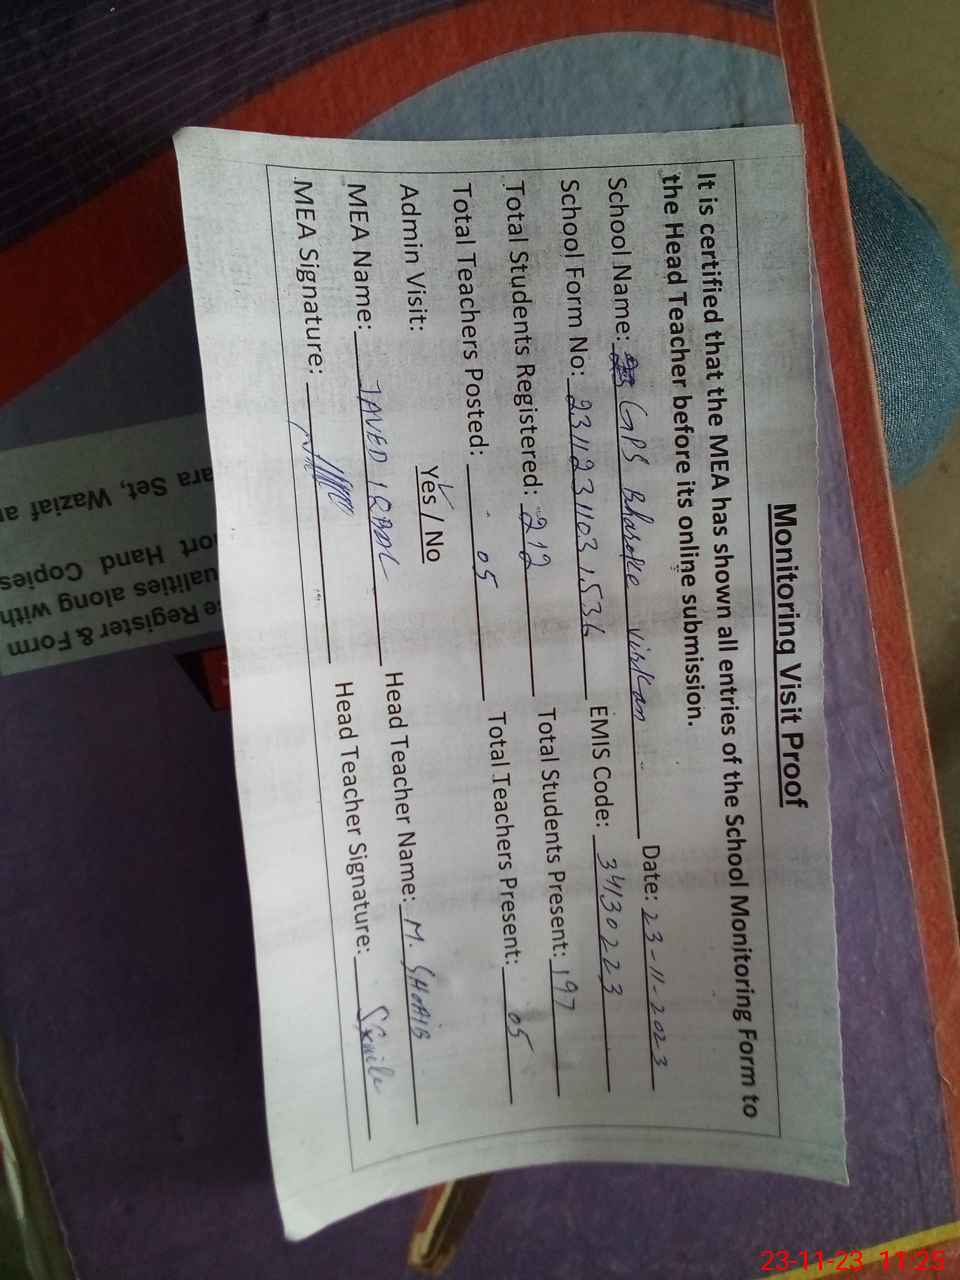 Monitoring Visit Proof
It is certified that the MEA has shown all entries of the School Monitoring Form to
the Head Teacher before its online submission.
School Name: GPS Bhaboke virkan Date: 23-11-2023
School Form No: 23112311031536 EMIS Code: 34130223
Total Students Registered: 212 Total Students Present: 197
Total Teachers Posted: 05 Total Teachers Present: 05
Admin Visit: Yes / No
MEA Name: JAVED IQBAL Head Teacher Name: M. SHOAIB
MEA Signature: Head Teacher Signature:
e Register & Form
ualities along with
ort Hand Copies
ara Set, Waziaf a
23-11-23 11:25